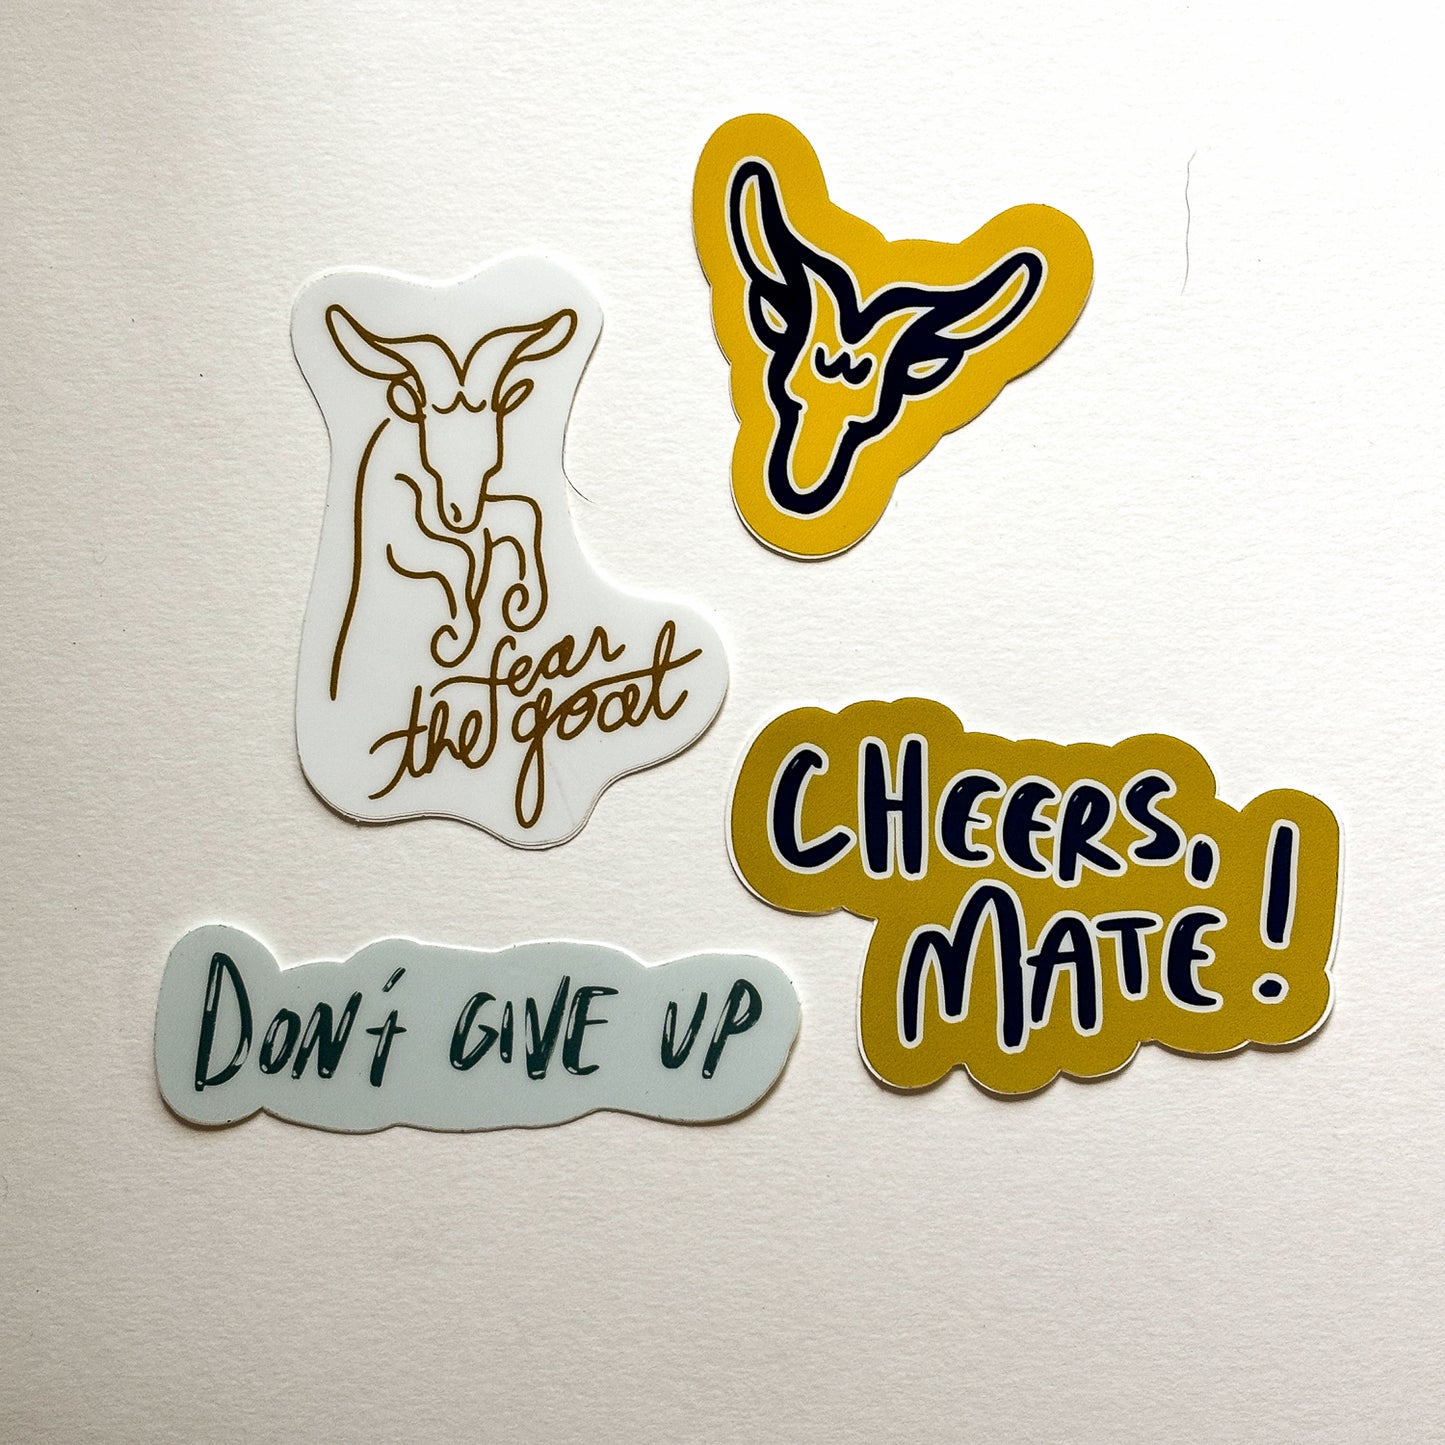 fear
the goat
CHEERS,
MATE!
DON'T GIVE UP